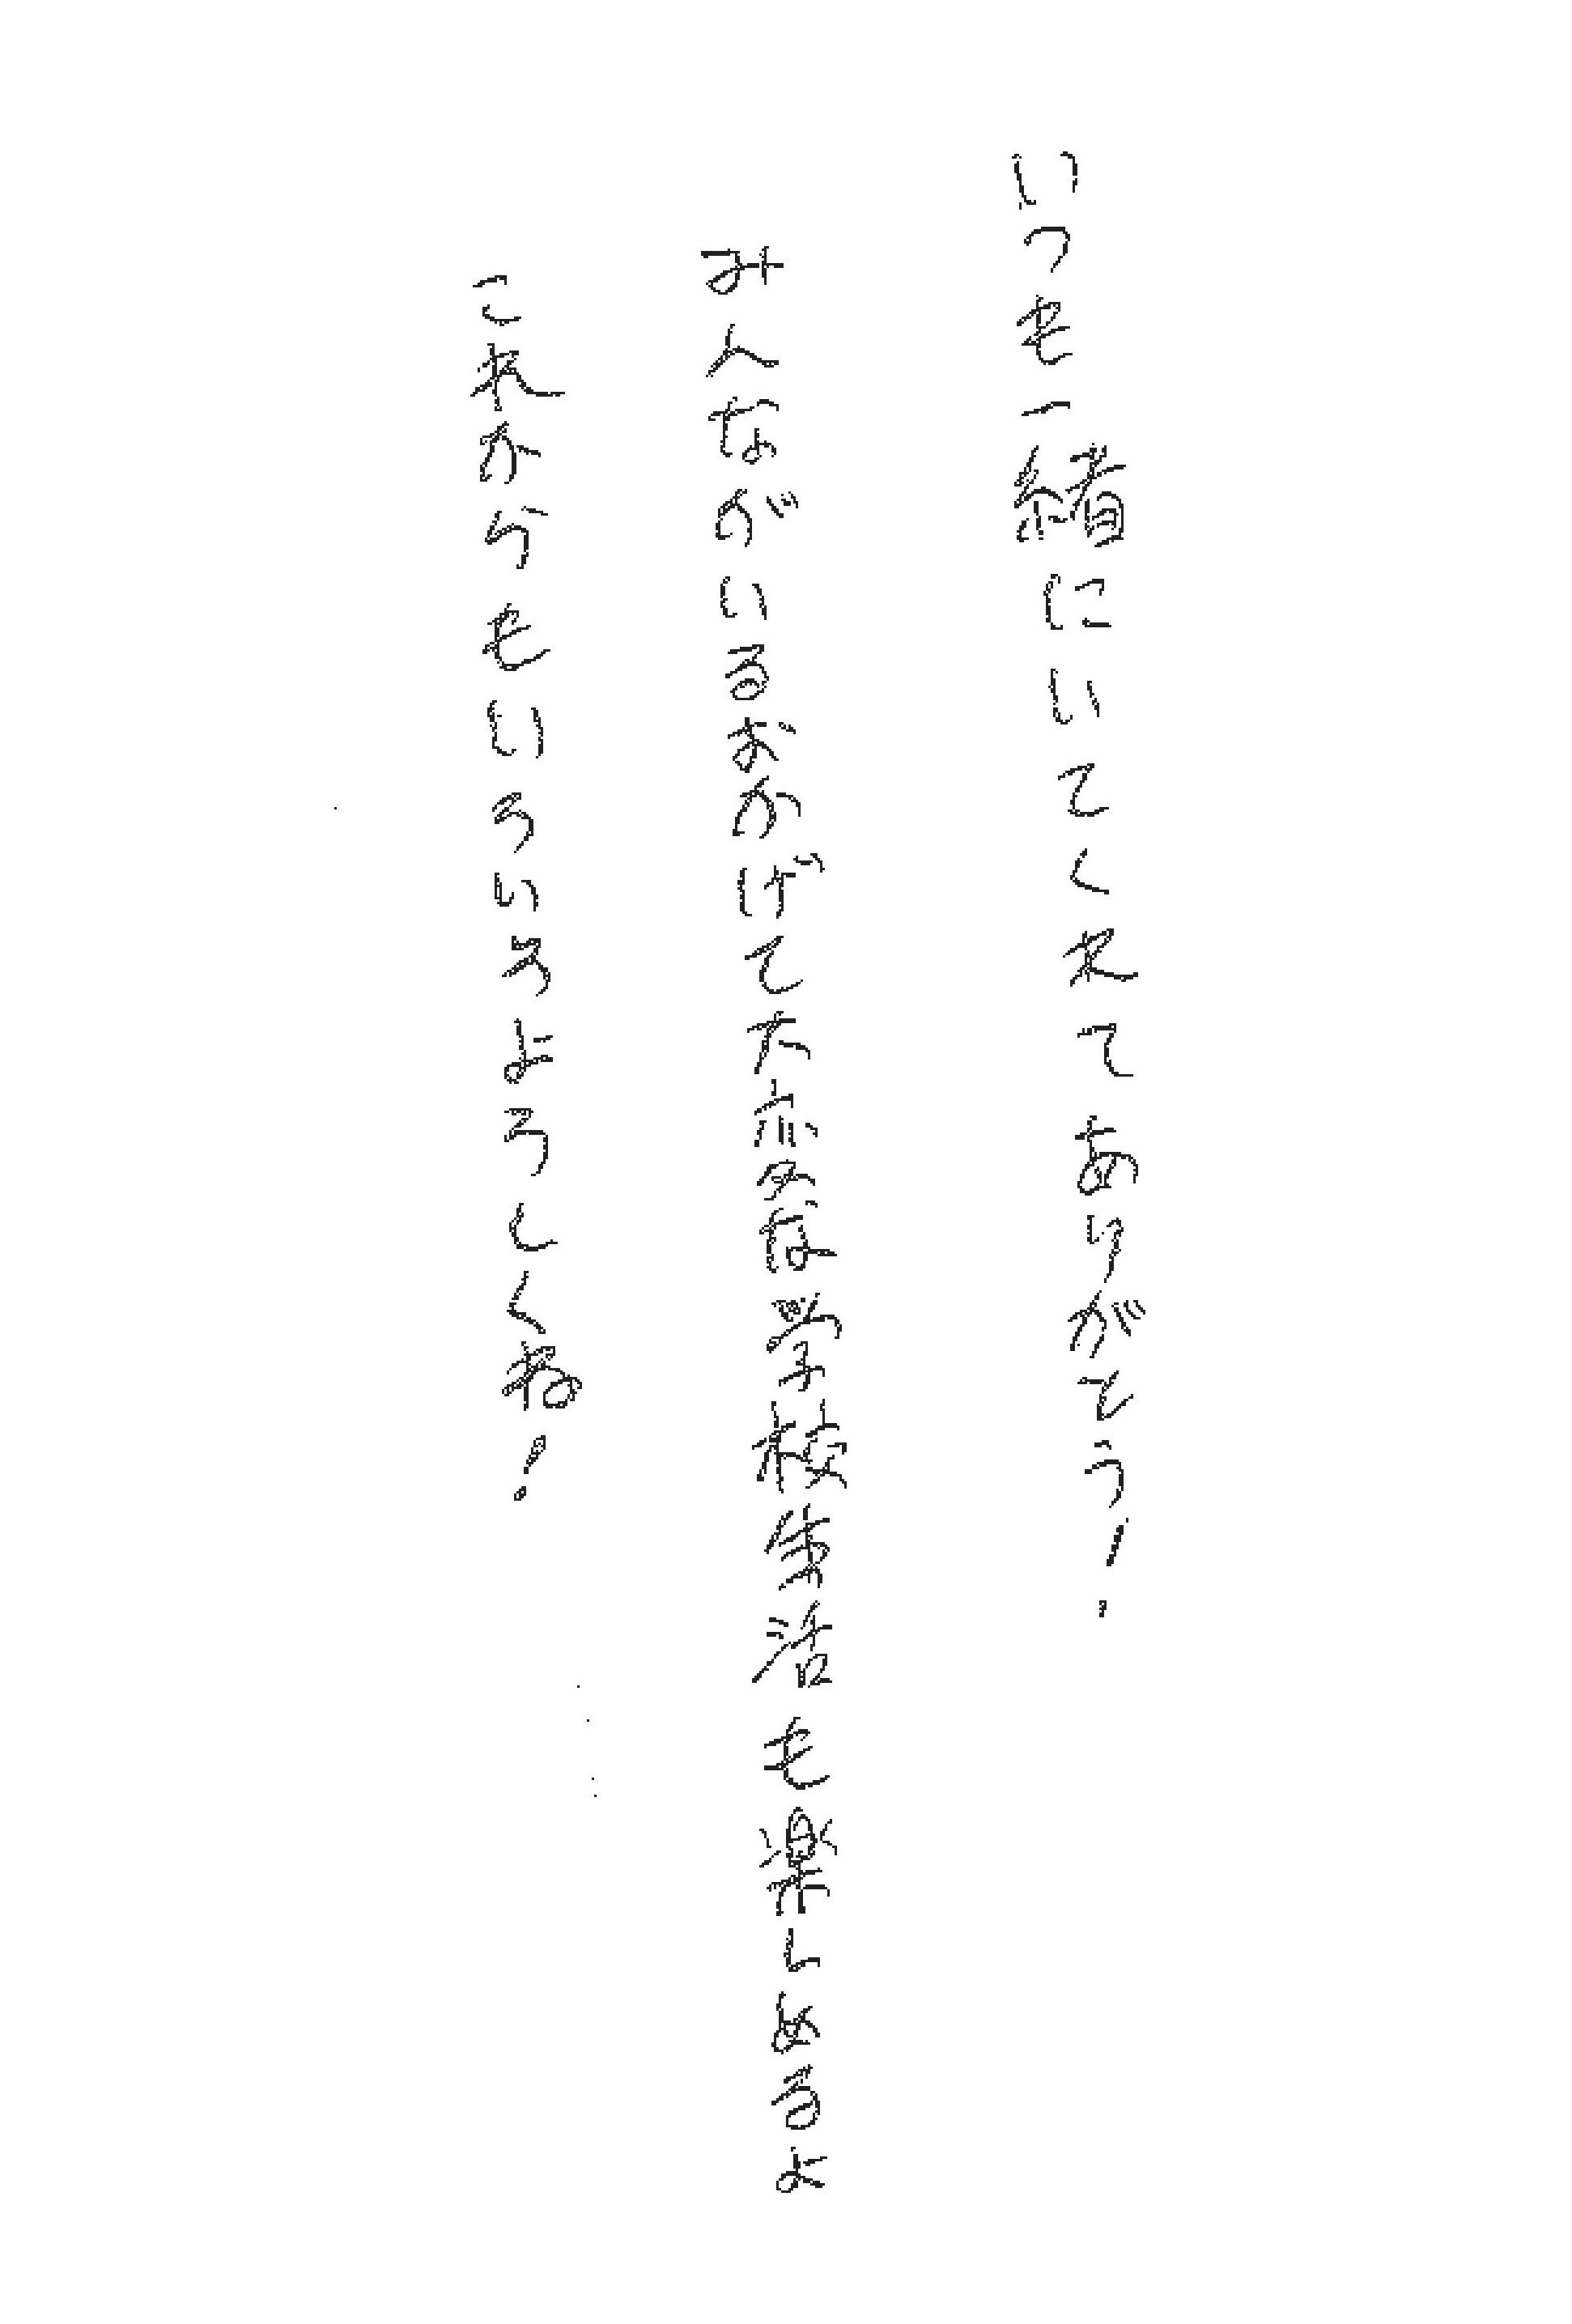 いつも一緒にいてくれてありがとう!
みんながいるおかげて大変な学校生活も楽しめるよ
これからもいろいろよろしくね!